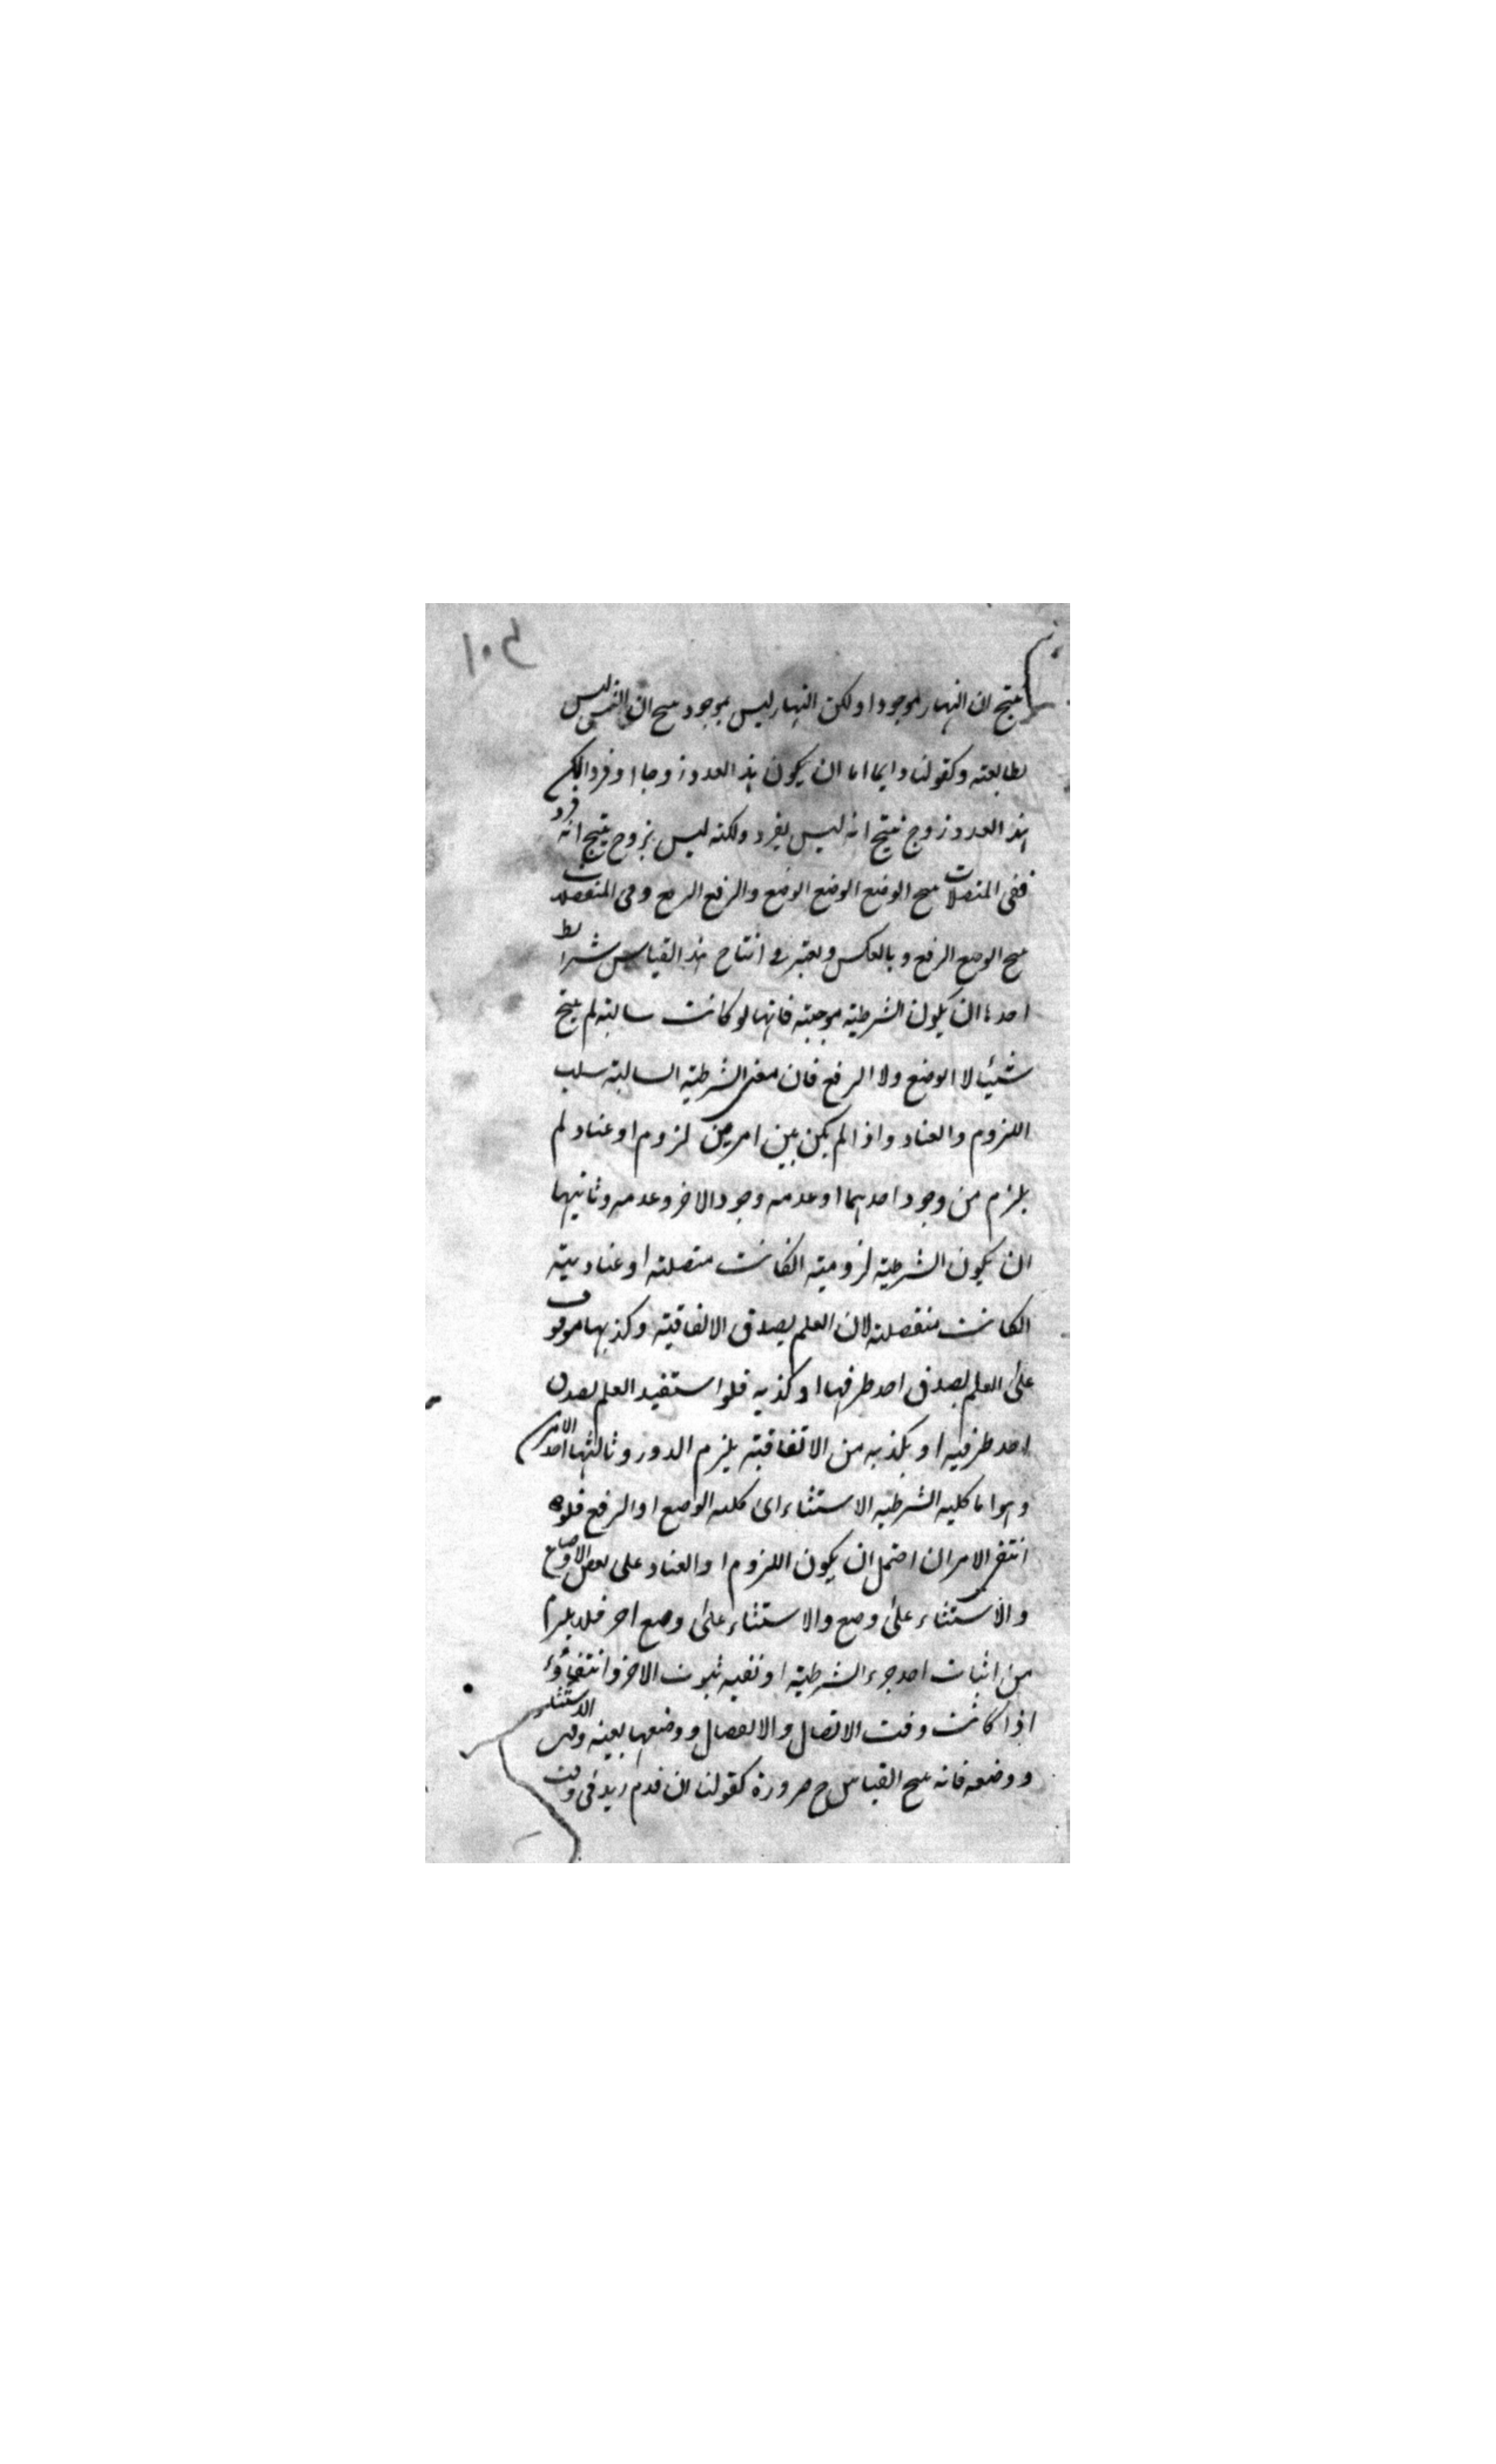 ١٠٤
ينتج ان النهار موجودا ولكن النهار ليس بموجود ينتج ان الشمس ليس
بطالعة وكقولنا دايما اما ان يكون هذا العدد زوجا او فردا لكن
هذا العدد زوج ينتج انه ليس بفرد ولكنه ليس بزوج ينتج انه فرد
ففى المتصلات ينتج الوضع الوضع الوضع والرفع الرفع وفى المنفصلات
ينتج الوضع الرفع وبالعكس ويعتبر فى انتاج هذا القياس شرايط
احدها ان يكون الشرطية موجبة فانها لو كانت سالبة لم ينتج
شيئا لا الوضع ولا الرفع فان معنى الشرطية السالبة سلب
اللزوم والعناد واذا لم يكن بين امرين لزوم او عناد لم
يلزم من وجود احدهما او عدمه وجود الاخر وعدمه وثانيها
ان يكون الشرطية لزومية انكانت متصلة او عنادية
انكانت منفصلة لان العلم بصدق الاتفاقية وكذبها موقوف
على العلم بصدق احد طرفيها او كذبه فلو استفيد العلم بصدق
احد طرفيه او بكذبه من الاتفاقية يلزم الدور وثالثها احد الامرين
وهو اما كلية الشرطية الاستثناء اى كلية الوضع او الرفع فلو
انتفى الامران احتمل ان يكون اللزوم او العناد على بعض الاوضاع
والاستثناء على وضع والاستثناء على وضع اخر فلا يلزم
من اثبات احد جزء الشرطية او نفيه ثبوت الاخر وانتفاؤه
اذا كانت وقت الاتصال والانفصال ووضعها بعينه وقت الاستثناء
ووضعه فانه ينتج القياس ح ضرورة كقولنا ان قدم زيد فى وقت